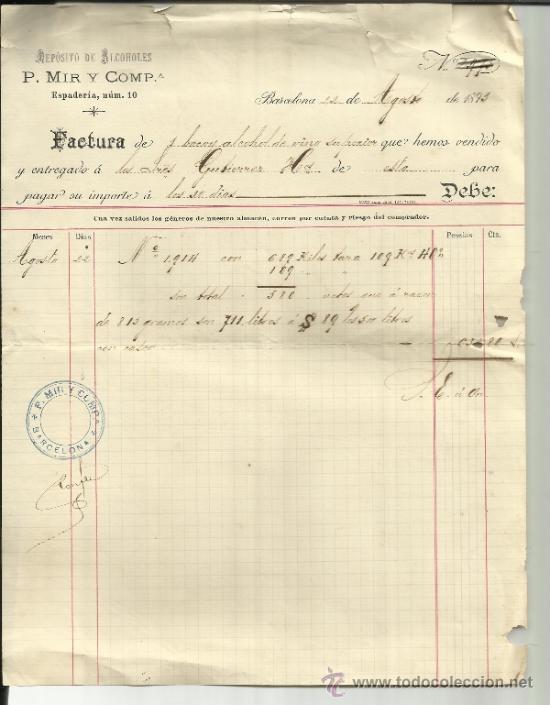 DEPÓSITO DE ALCOHOLES
P. MIR Y COMP.A
Espadería, núm. 10
N.º
Barcelona 22 de Agosto de 1893
Factura de 1 bocoy alcohol de vino superior que hemos vendido
y entregado á los Sres Gutierrez Hs de esta para
pagar su importe á los 30 dias Debe:
Una vez salidos los géneros de nuestro almacén, corren por cuenta y riesgo del comprador.
Meses Días Pesetas Cts.
Agosto 22 Nº 1914 con 689 Kilos tara 109 Ks
109
son total 580 netos que á razon
de 815 gramos son 711 litros á $ 89 los 500 litros
con casco
S. E. ú O.
P. MIR Y COMP.A
BARCELONA
todocoleccion
www.todocoleccion.net